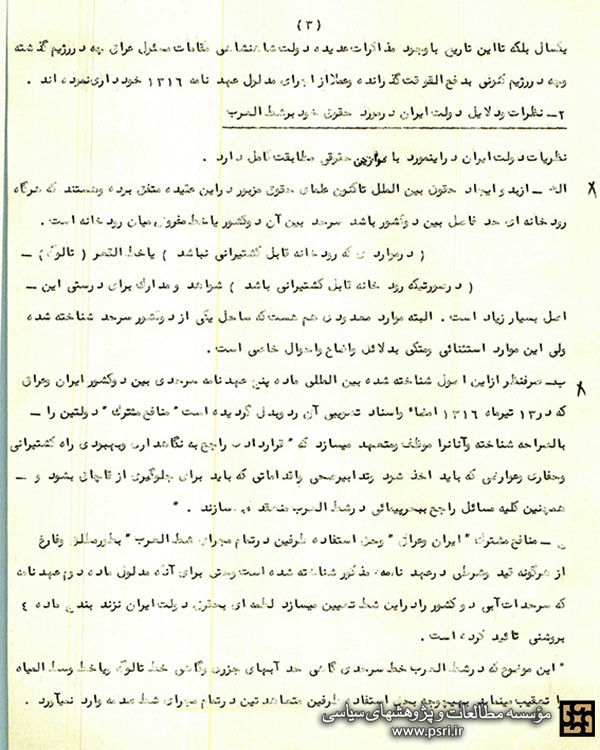 (۳)
یکسال بلکه تا این تاریخ با وجود مذاکرات عدیده دولت شاهنشاهی مقامات مسئول عراق چه در رژیم گذشته
وچه در رژیم کنونی بدفع الوقت گذرانده وعملا از اجرای مدلول عهد نامه ۱۳۱۶ خودداری نموده اند .
۲ــ نظرات ودلایل دولت ایران درمورد حقوق خود برشط العرب
نظریات دولت ایران در اینمورد با موازین حقوقی مطابقت کامل دارد .
الف ــ از بدو ایجاد حقوق بین الملل تاکنون علمای حقوق مزبور در این عقیده متفق بوده وهستند که هرگاه
رود خانه ای حد فاصل بین دوکشور باشد سرحد بین آن دوکشور یاخط مفروض میان رود خانه است .
( در مواردی که رود خانه قابل کشتیرانی نباشد ) یاخط القعر ( تالوک ) ــ
( درصورتیکه رود خانه قابل کشتیرانی باشد ) شواهد و مدارک برای درستی این ــ
اصل بسیار زیاد است . البته موارد معدودی هم هست که ساحل یکی از دوکشور سرحد شناخته شده
ولی این موارد استثنائی ومتکی بدلائل واوضاع واحوال خاصی است .
ب ــ صرفنظر از این اصول شناخته شده بین المللی ماده پنج عهدنامه سرحدی بین دوکشور ایران وعراق
که در ۱۳ تیرماه ۱۳۱۶ امضاء واسناد تصویبی آن رد وبدل گردیده است " منافع مشترک " دولتین را ــ
بالصراحه شناخته وآنانرا موظف ومتعهد میسازد که " قراردادی راجع به نگاهداری وبهبودی راه کشتیرانی
وحفاری وعوارضی که باید اخذ شود وتدابیر صحی واقداماتی که باید برای جلوگیری از قاچاق بشود و ــ
همچنین کلیه مسائل راجع ببحرپیمائی در شط العرب منعقد سازند . "
ج ــ منافع مشترک " ایران وعراق " وحق استفاده طرفین در تمام مجرای شط العرب " بطور مطلق وفارغ
از هرگونه قید وشرطی در عهد نامه مذکور شناخته شده است وحتی برای آنکه مدلول ماده دوم عهدنامه
که سرحدات آبی دو کشور را در این شط تعیین میسازد لطمه ای بحقوق دولت ایران نزند بند ماده ۴
بروشنی تائید کرده است .
" این موضوع که در شط العرب خط سرحدی گاهی حد آبهای جزری وگاهی خط تالوک ویاخط وسط المیاه
را تعقیب مینماید بهیچوجه بحق استفاده طرفین متعاهدتین در تمام مجرای شط صدمه وارد نمیآورد .
مؤسسه مطالعات و پژوهشهای سیاسی
www.psri.ir